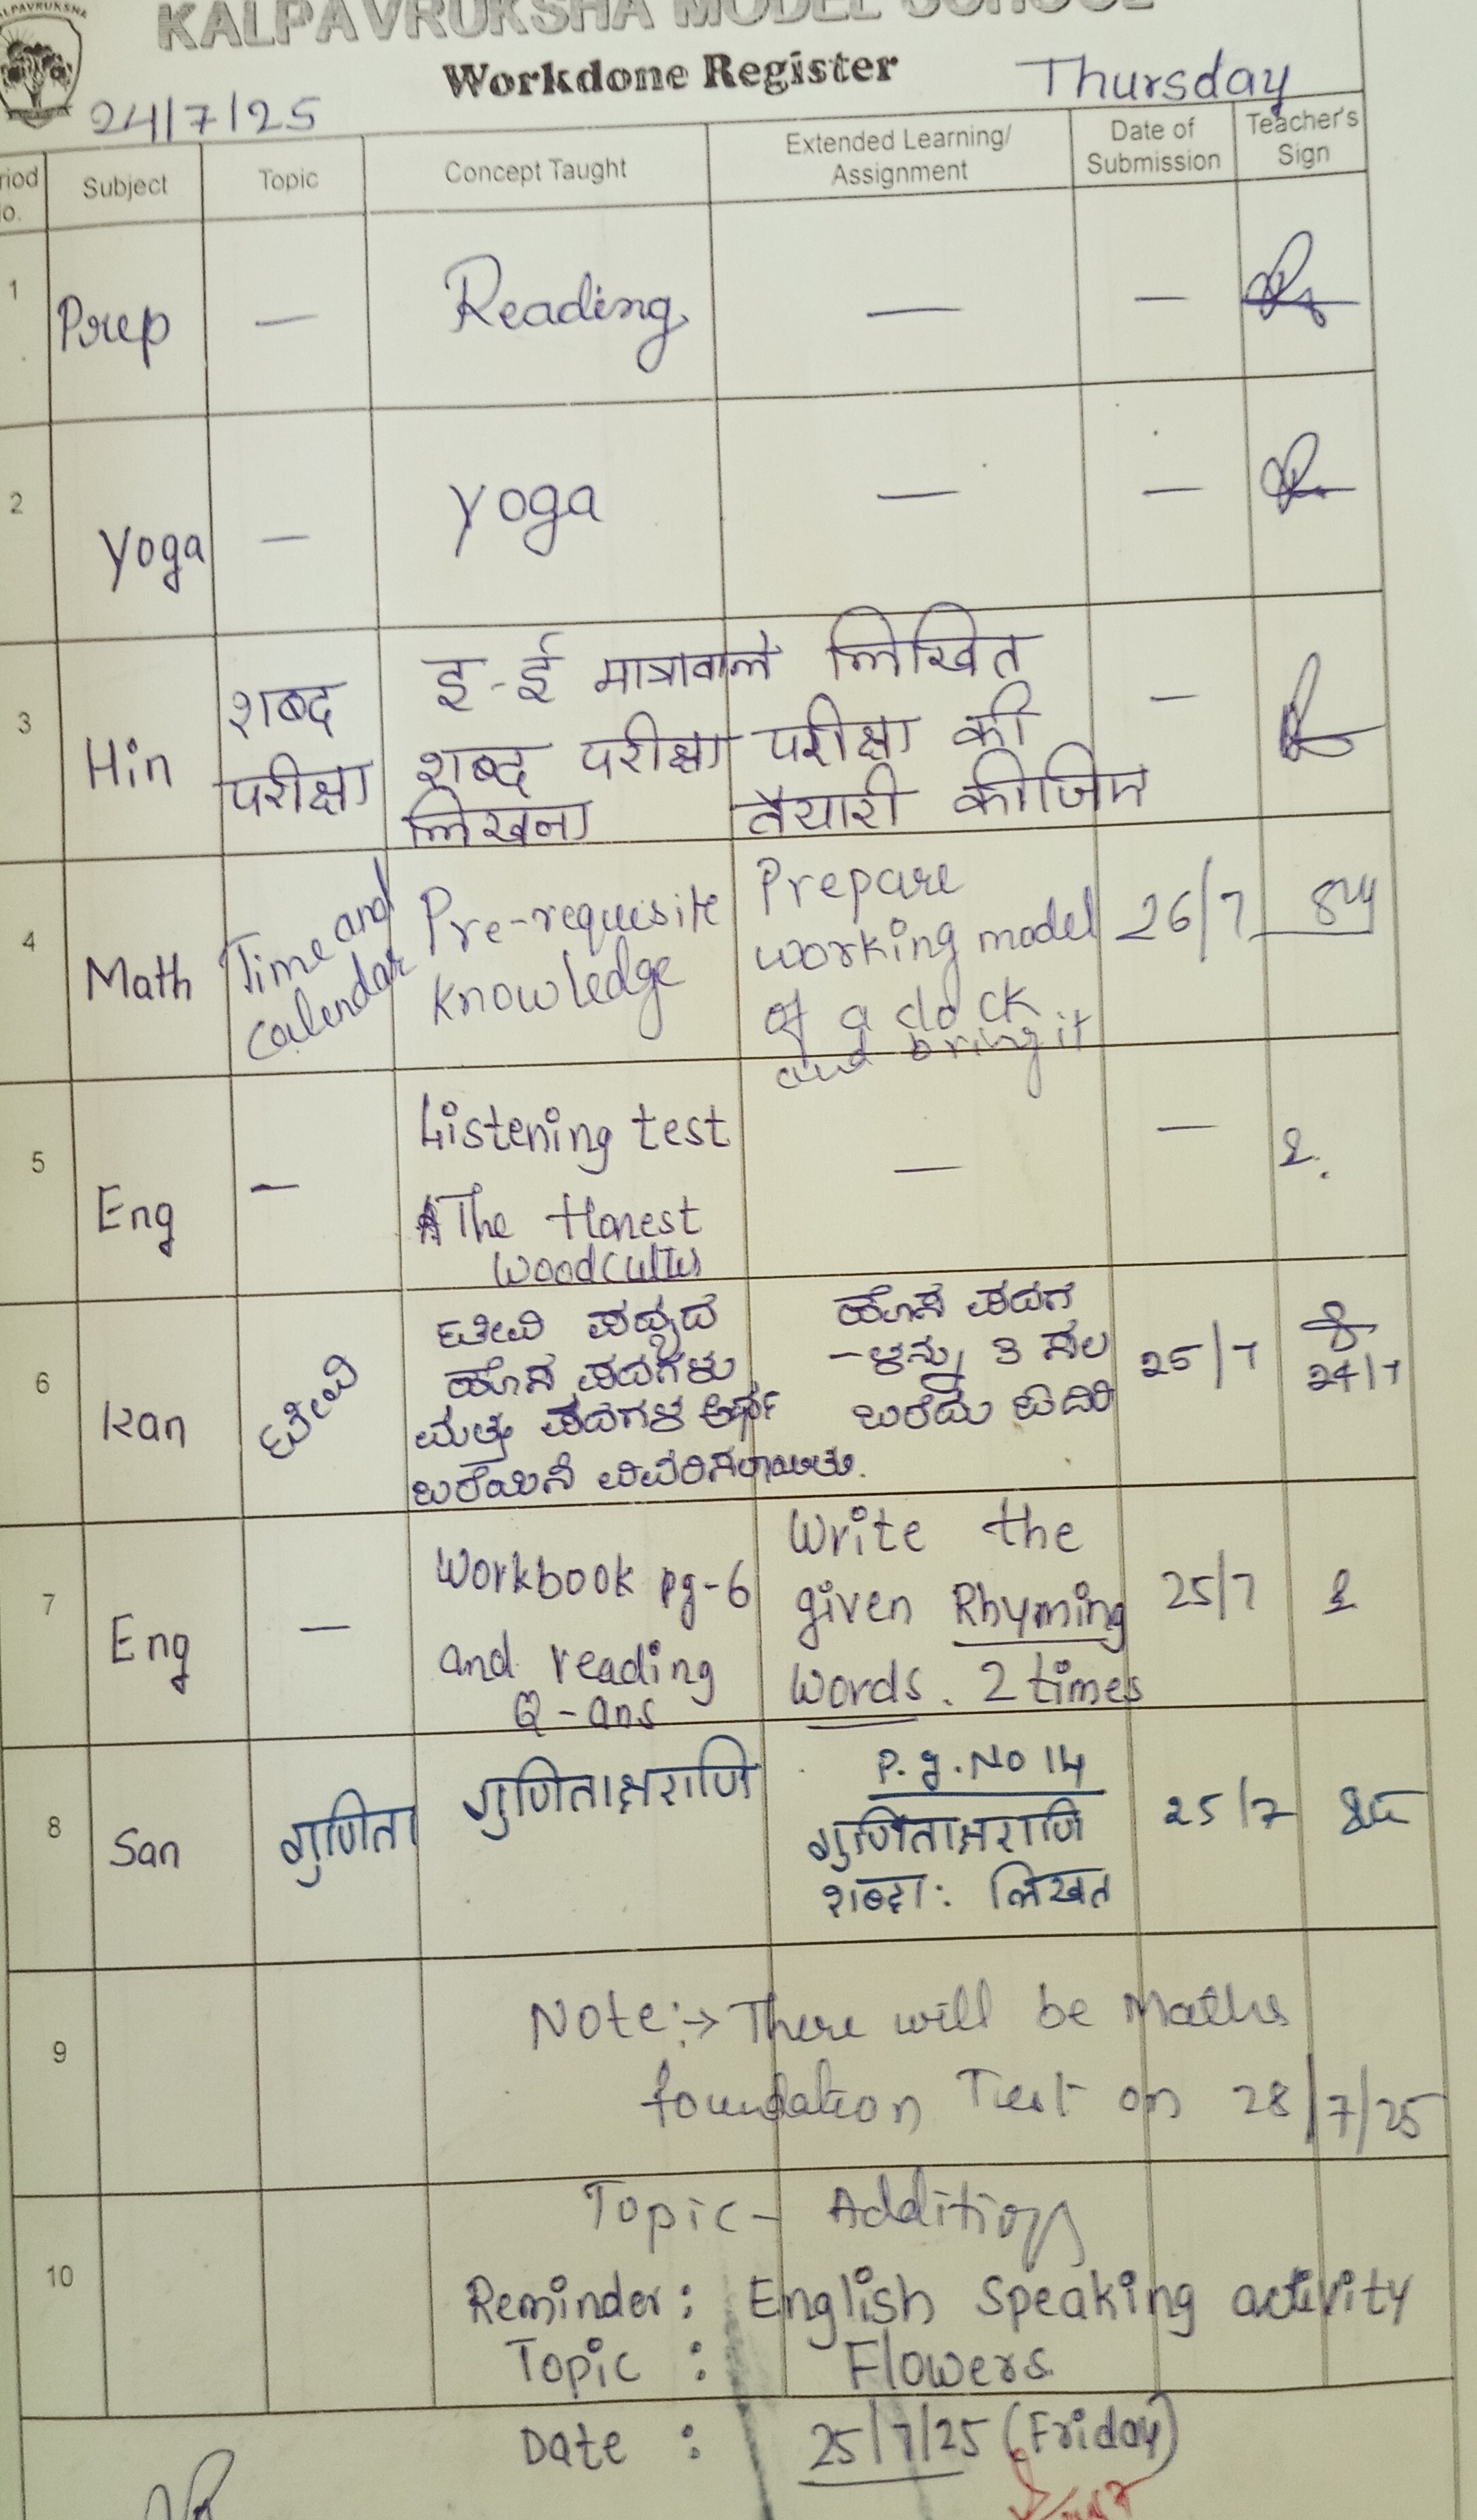 KALPAVRUKSHA
KALPAVRUKSHA MODEL SCHOOL
Workdone Register
Thursday
24/7/25
Subject
Topic
Concept Taught
Extended Learning/
Assignment
Date of
Submission
Teacher's
Sign
1
Prep
—
Reading
—
—
2
Yoga
—
Yoga
—
—
3
Hin
शब्द
परीक्षा
इ-ई मात्रावाले
शब्द परीक्षा
लिखना
लिखित
परीक्षा की
तैयारी कीजिए
—
4
Math
Time and
Calendar
Pre-requisite
knowledge
Prepare
working model
of a clock
and bring it
26/7
5
Eng
—
Listening test
The Honest
Woodcutter
—
—
6
Kan
ಟೀವಿ
ಟೀವಿ ಪದ್ಯದ
ಹೊಸ ಪದಗಳು
ಮತ್ತು ಪದಗಳ ಅರ್ಥ
ಬರೆಯಿಸಿ ವಿವರಿಸಲಾಯಿತು.
ಹೊಸ ಪದಗ
-ಳನ್ನು 3 ಸಲ
ಬರೆದು
25/7
24/7
7
Eng
—
Workbook pg-6
and reading
Q-ans
Write the
given Rhyming
words. 2 times
25/7
8
San
गुणिता
गुणिताक्षराणि
P.g.No 14
गुणिताक्षराणि
शब्दा: लिखत
25/7
9
Note:→ There will be Maths
foundation Test on 28/7/25
10
Topic - Addition
Reminder: English Speaking activity
Topic : Flowers
Date : 25/7/25 (Friday)